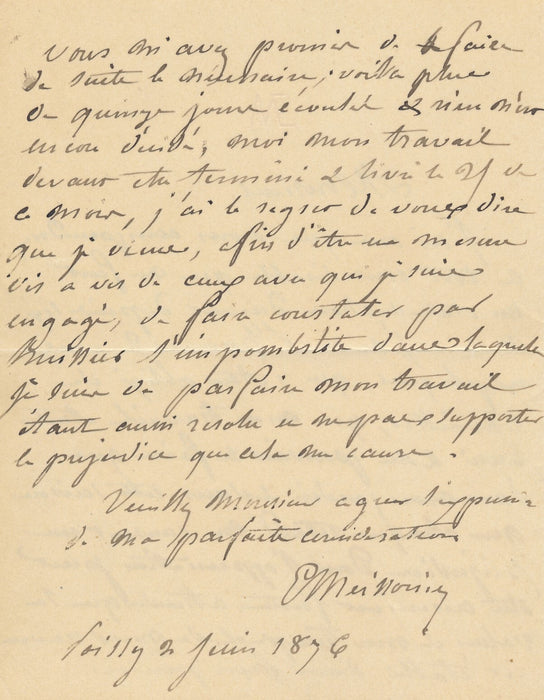 Vous m'avez promis de faire
de suite le nécessaire, voilà plus
de quinze jours écoulés et rien n'est
encore décidé, moi mon travail
devant être terminé et livré le 25 de
ce mois, j'ai le regret de vous dire
que je viens, afin d'être en mesure
vis a vis de ceux avec qui je suis
engagé, de faire constater par
huissier l'impossibilité dans laquelle
je suis de parfaire mon travail
étant aussi résolu a ne pas supporter
le préjudice que cela me cause.
Veuillez Monsieur agréer l'expression
de ma parfaite considération
EMeissonier
Poissy 2 Juin 1876